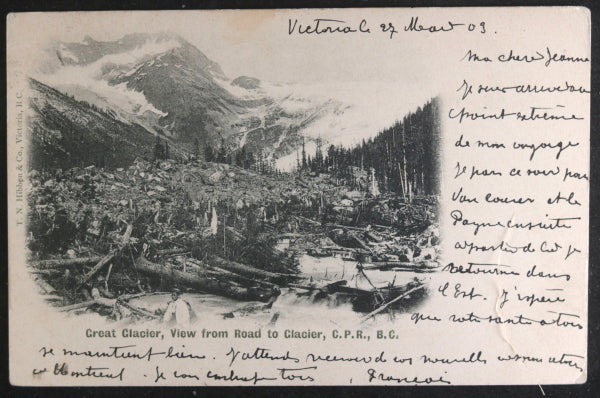 Victoria le 27 Mars 03.
Ma chere Jeanne
Je suis arrivé au
point extrême
de mon voyage
Je pars ce soir pour
Vancouver et le
de là je
retourne dans
l'Est. J'espère
que votre santé à tous
se maintient bien. J'attends recevoir de vos nouvelles à mon retour
à Montreal. Je vous embrasse tous, François
Great Glacier, View from Road to Glacier, C.P.R., B.C.
T. N. Hibben & Co., Victoria, B.C.